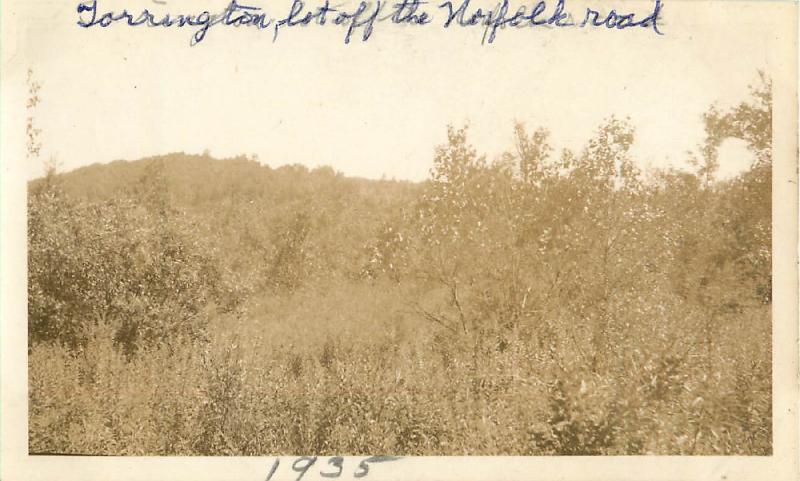 Torrington, lot off the Norfolk road
1935